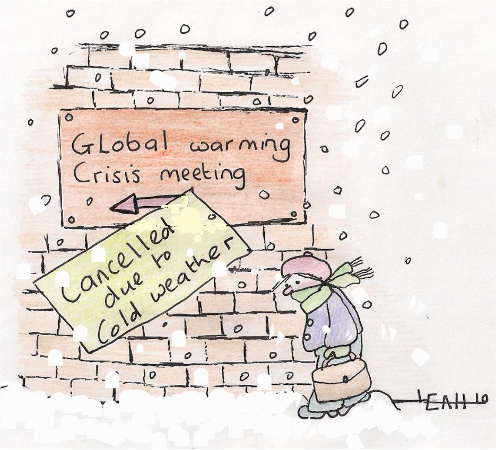 Global warming
Crisis meeting
Cancelled
due to
Cold weather
LEAH 10